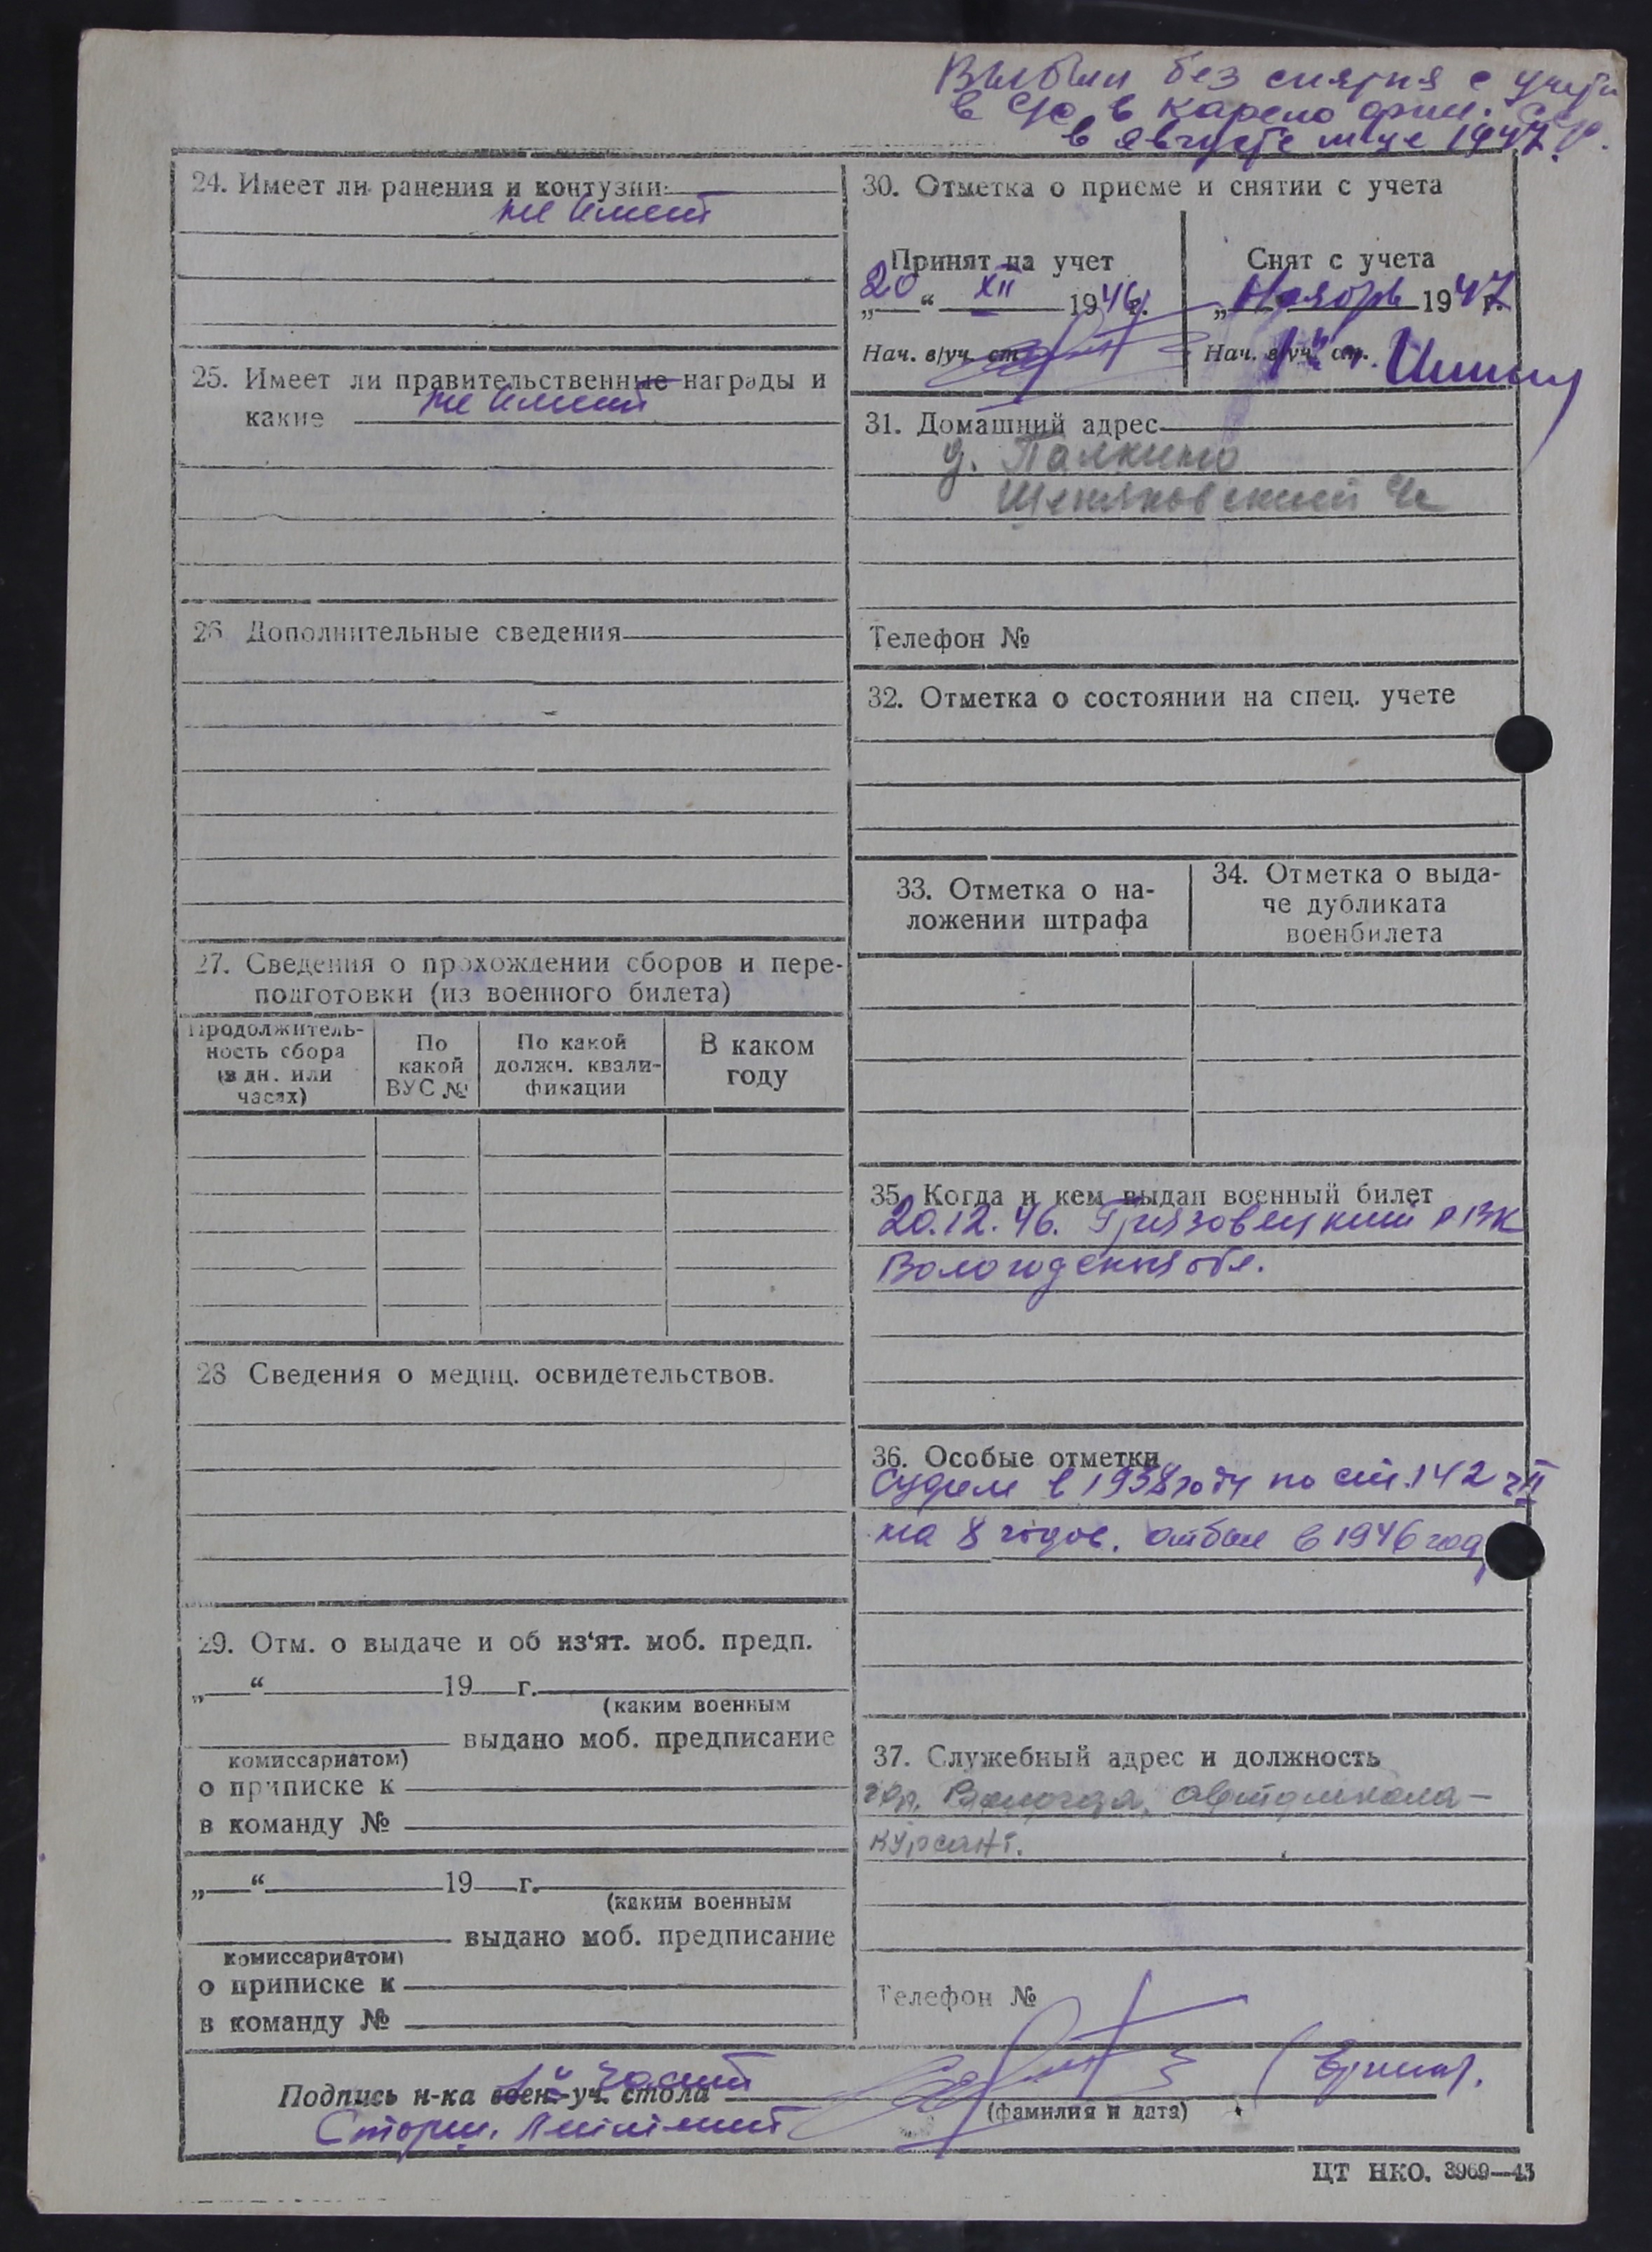 Выбыл без снятия с учета
в в Карело фин.
в августе м-це 1947 г.
24. Имеет ли ранения и контузии
не имеет
25. Имеет ли правительственные награды и
какие не имеет
26 Дополнительные сведения
27. Сведения о прохождении сборов и пере-
подготовки (из военного билета)
Продолжитель-
ность сбора
(в дн. или
часах)
По
какой
ВУС №
По какой
должн. квали-
фикации
В каком
году
28 Сведения о медиц. освидетельствов.
29. Отм. о выдаче и об из‘ят. моб. предп.
„ “ 19 г.
(каким военным
выдано моб. предписание
комиссариатом)
о приписке к
в команду №
„ “ 19 г.
(каким военным
выдано моб. предписание
комиссариатом)
о приписке к
в команду №
30. Отметка о приеме и снятии с учета
Принят на учет
„20“ XII 1946 г.
Нач. в/уч. ст.
Снят с учета
„ Ноябрь 1947 г.
Нач. в/уч. ст.
31. Домашний адрес
д. Палкино
Щекляковский
Телефон №
32. Отметка о состоянии на спец. учете
33. Отметка о на-
ложении штрафа
34. Отметка о выда-
че дубликата
военбилета
35. Когда и кем выдан военный билет
20.12.46. Грязовецкий РВК
Вологодская обл.
36. Особые отметки
Судим в 1938 году по ст. 142 ч II
на 8 годов. отбыл в 1946 году
37. Служебный адрес и должность
гор. Вологда, автошкола –
курсант.
Телефон №
1й части
Подпись н-ка воен.-уч. стола
Старш. Лейтенант
(фамилия и дата)
ЦТ НКО. 3969—43